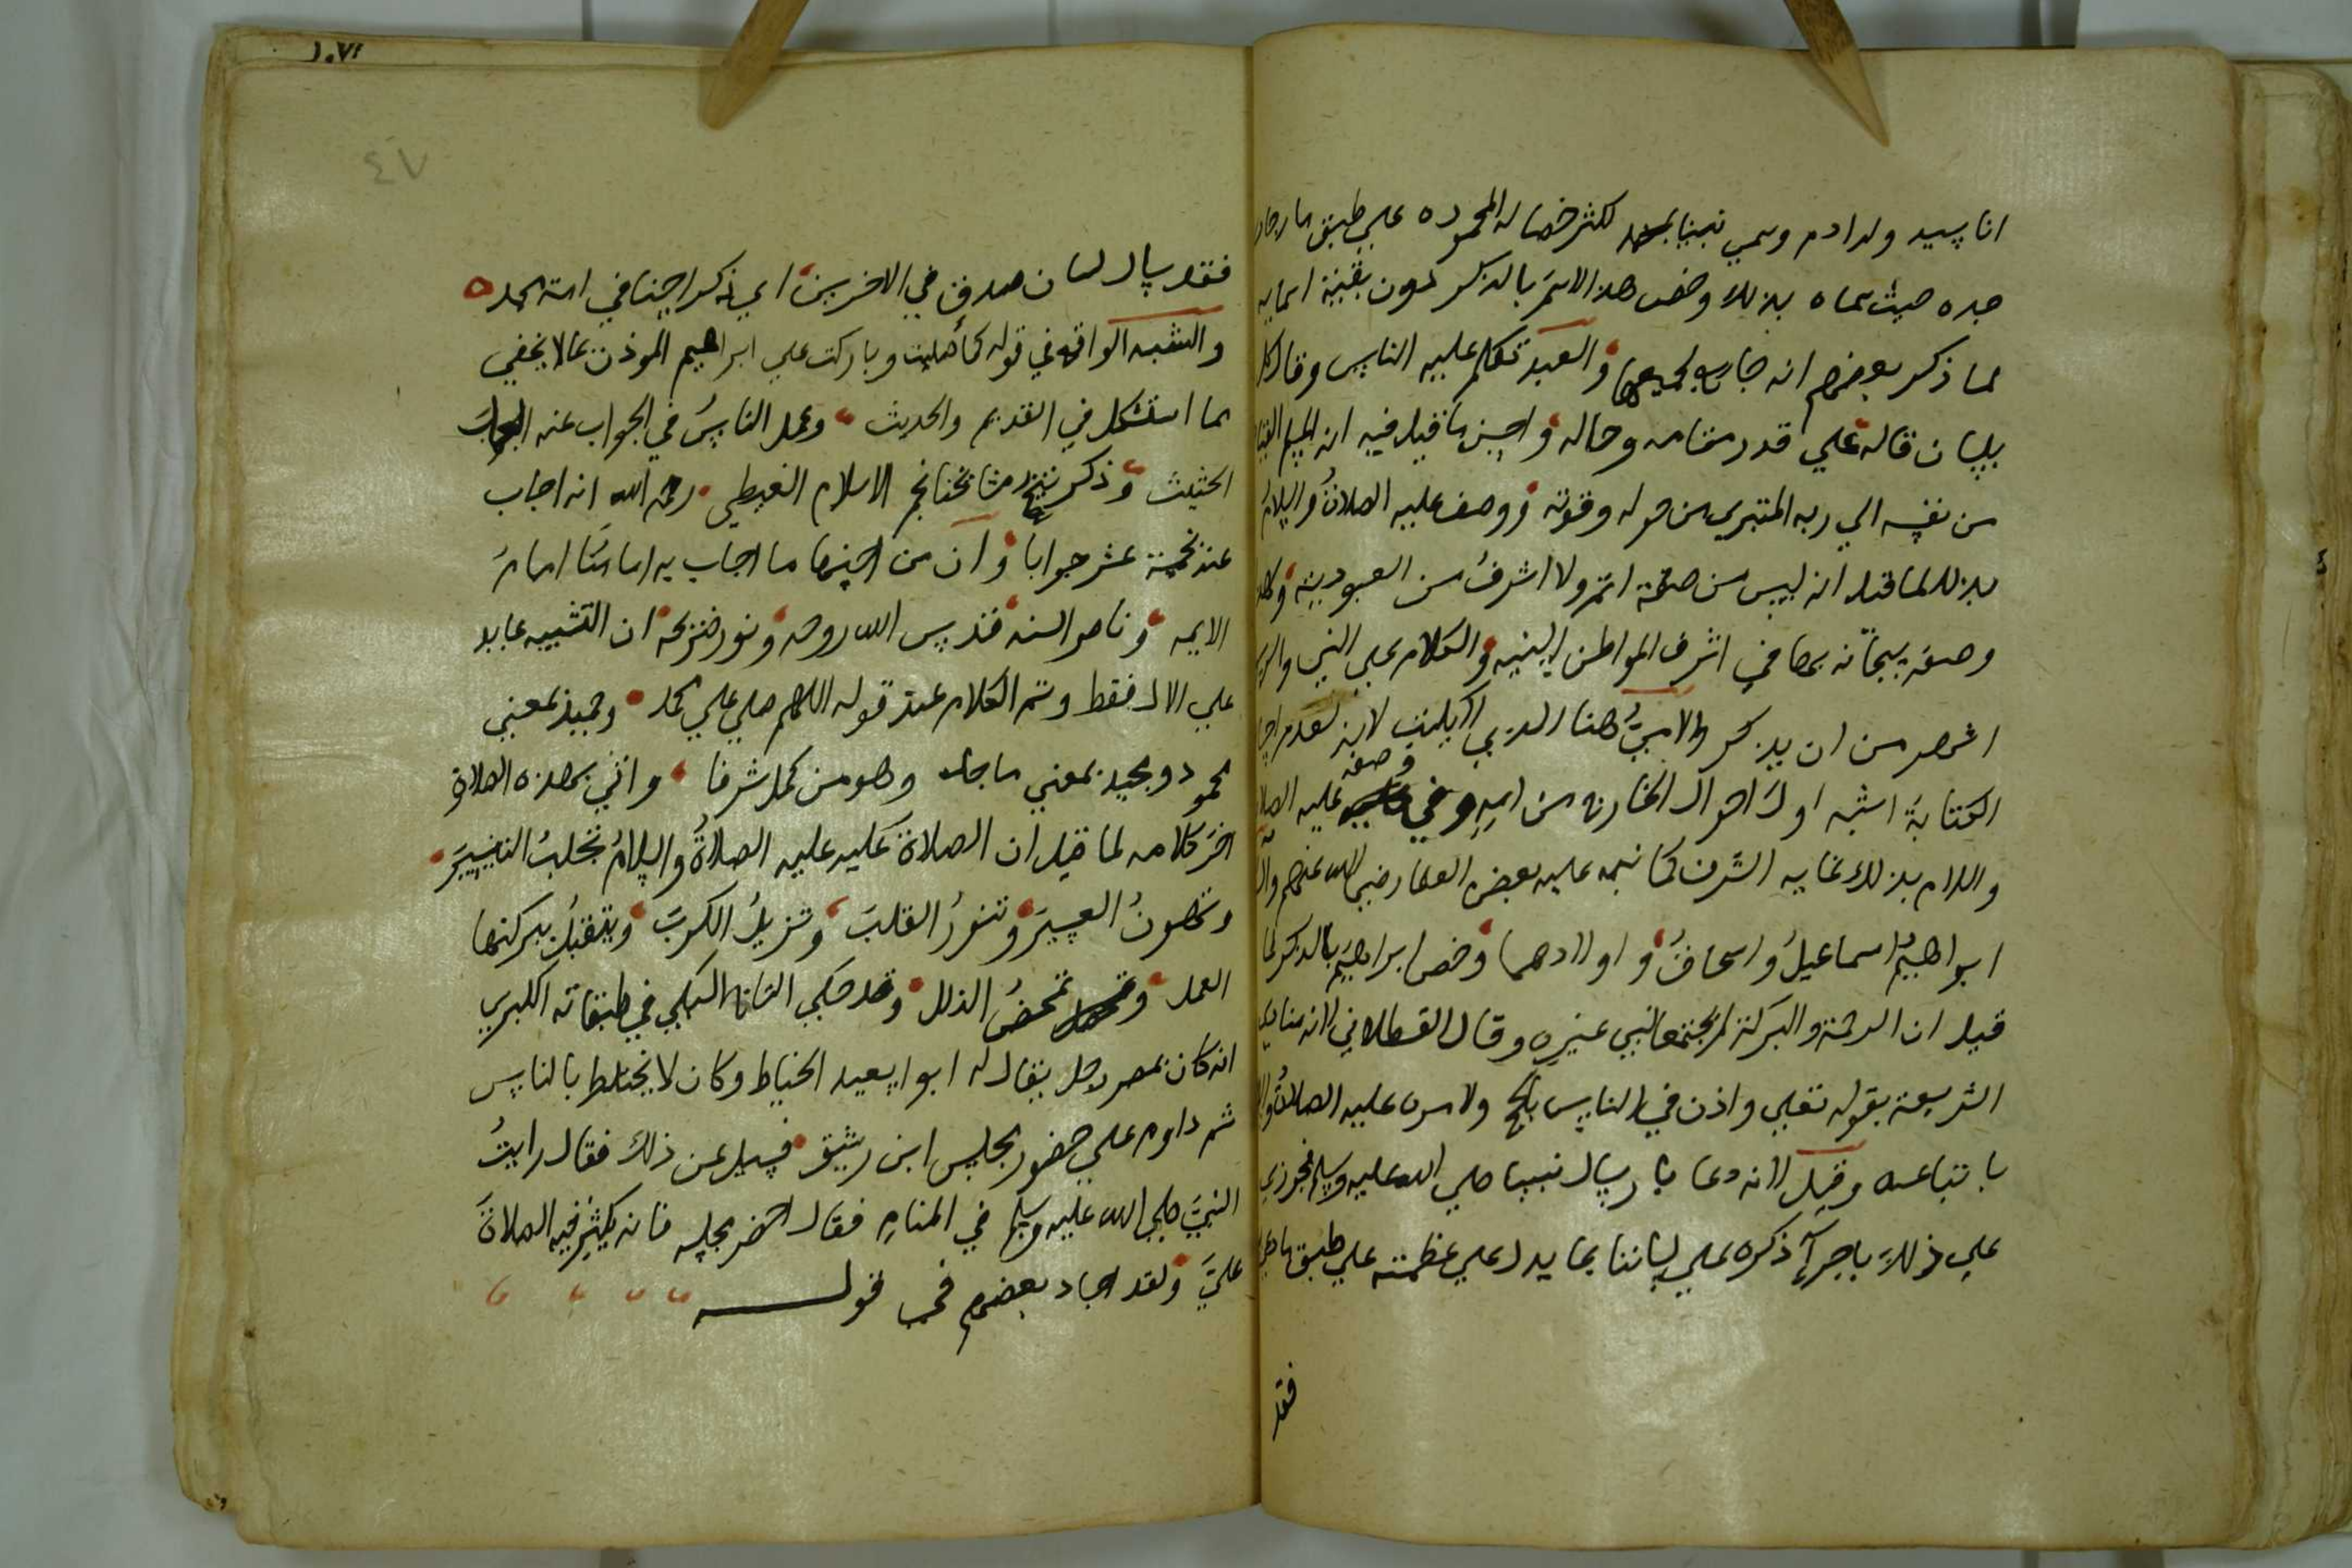 انا سيد ولد ادم وسمي نبينا بمحمد لكثر خصاله المحموده علي طبق ما رجاه
جده حيث سماه بذلك وخص هذا الاسم بالذكر دون بقية اسمايه
لما ذكر بعضهم انه جامع لجميعها والعبد تكلم عليه الناس وقال كل
بلسان قاله علي قدر مقامه وحاله واحسن ما قيل فيه انه المسلم
من نفسه الي ربه المتبري من حوله وقوته ووصف عليه الصلاة والسلام
بذلك لما قيل انه ليس من صفة اتم ولا اشرف من العبودية
وصفه سبحانه بها في اشرف المواطن السنيه والكلام علي النبي
اشهر من ان يذكر والاميّ هنا الذي لا يكتب لان عدم
الكتابة اشبه اول احوال الخارج من امه وفي وصفه عليه
والسلام بذلك غاية الشرف كما نبه عليه بعض العلما رضي الله عنهم
ابراهيم اسماعيل واسحاق واولادهما وخص ابراهيم بالذكر لما
قيل ان الرحمة والبركة لم يجتمعا لنبي غيره وقال القسطلاني لانه
الشريعة بقوله تعلي واذن في الناس بالحج ولامره عليه الصلاة
باتباعه وقيل لانه دعا بارسال نبينا صلي الله عليه وسلم فجوزي
علي ذلك باجرآء ذكره علي لساننا بما يدل علي عظمته علي طبق
فقد
١٠٧٢
٤٧
فقد سال لسان صدق في الاخرين اي ذكرا حسنا في امة محمد
والتشبيه الواقع في قوله كما صليت وباركت علي ابراهيم الموذن بما لا يخفي
مما استشكل في القديم والحديث وعمد الناس في الجواب عنه
الحثيث وذكر شيخ مشايخنا نجم الاسلام الغيطي رحمه الله انه اجاب
عنه نحمسة عشر جوابا وان من احسنها ما اجاب به امامنا امام
الايمه وناصر السنه قدس الله روحه ونور ضريحه ان التشبيه عايد
علي الال فقط وتم الكلام عند قوله اللهم صلي علي محمد وحميد بمعني
محمود ومجيد بمعني ماجد وهو من كمل شرفا واتي بهذه الصلاة
اخر كلامه لما قيل ان الصلاة عليه عليه الصلاة والسلام تجلب التيسير
وتهون العسير وتنور القلب وتزيل الكرب ويتقبل ببركتها
العمل وتمحض الذلل وقد حكي التاج السبكي في طبقاته الكبري
انه كان بمصر رجل يقال له ابو اسعيد الخياط وكان لا يختلط بالناس
ثم داوم علي حضور مجلس ابن رشيق فسيل عن ذلك فقال رايت
النبيّ صلي الله عليه وسلم في المنام فقال احضر مجلسه فانه يكثر فيه الصلاة
عليّ ولقد اجاد بعضهم في قوله